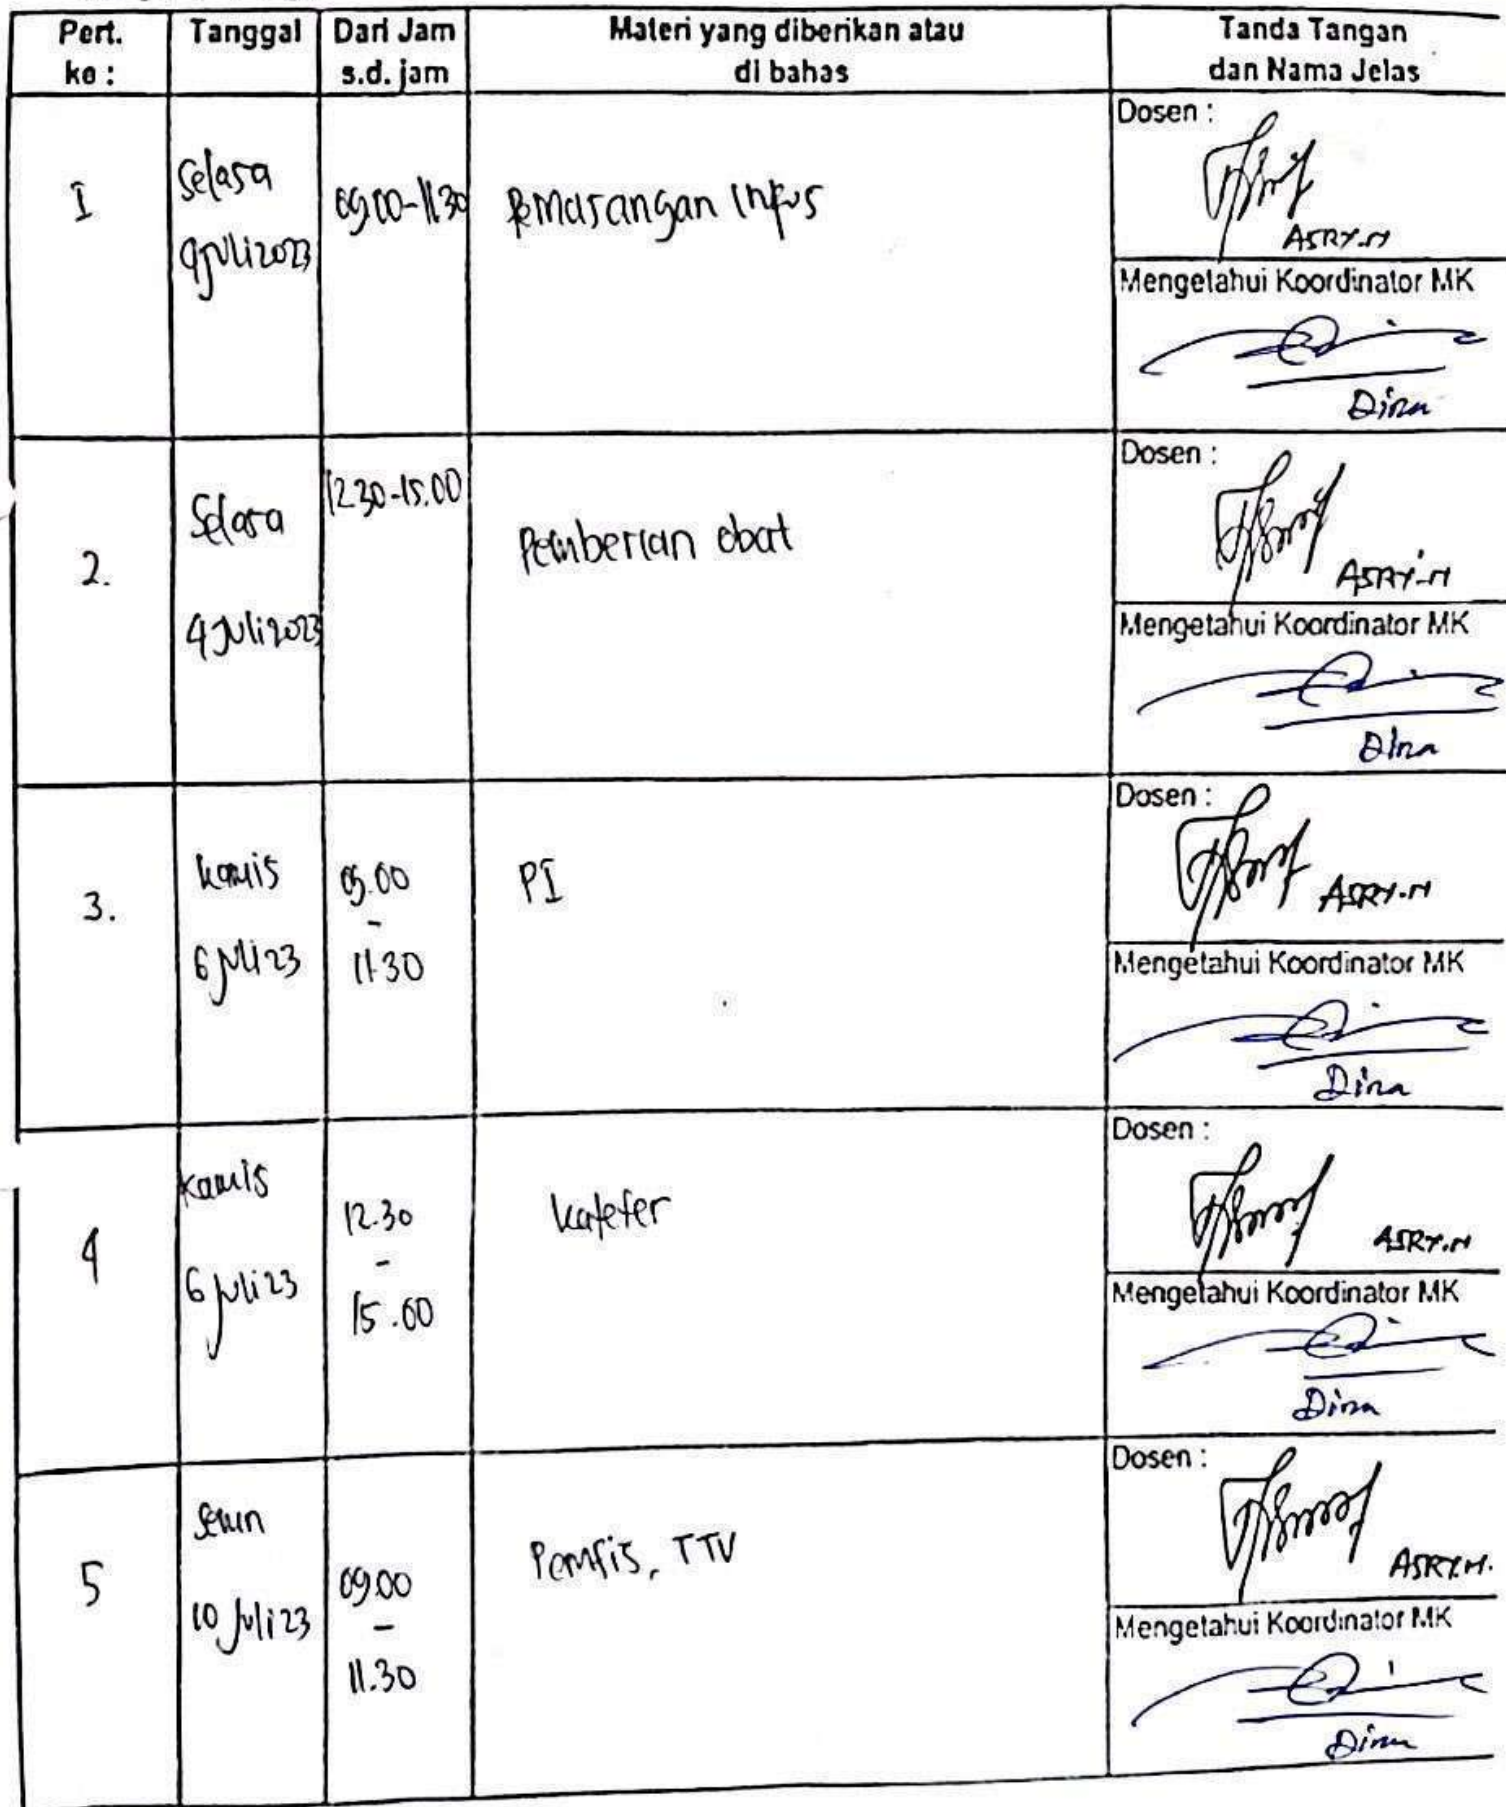 Pert. ke :
Tanggal
Dari Jam s.d. jam
Materi yang diberikan atau di bahas
Tanda Tangan dan Nama Jelas
I
Selasa
4 Juli 2023
09.00-11.30
Pemasangan Infus
Dosen :
ASRY.M
Mengetahui Koordinator MK
Dina
2.
Selasa
4 Juli 2023
12.30-15.00
Pemberian obat
Dosen :
ASRY.M
Mengetahui Koordinator MK
Dina
3.
kamis
6 Juli 23
09.00
-
11.30
PI
Dosen :
ASRY.M
Mengetahui Koordinator MK
Dina
4
kamis
6 Juli 23
12.30
-
15.00
kateter
Dosen :
ASRY.M
Mengetahui Koordinator MK
Dina
5
Senin
10 Juli 23
09.00
-
11.30
Pemfis, TTV
Dosen :
ASRY.M.
Mengetahui Koordinator MK
Dina